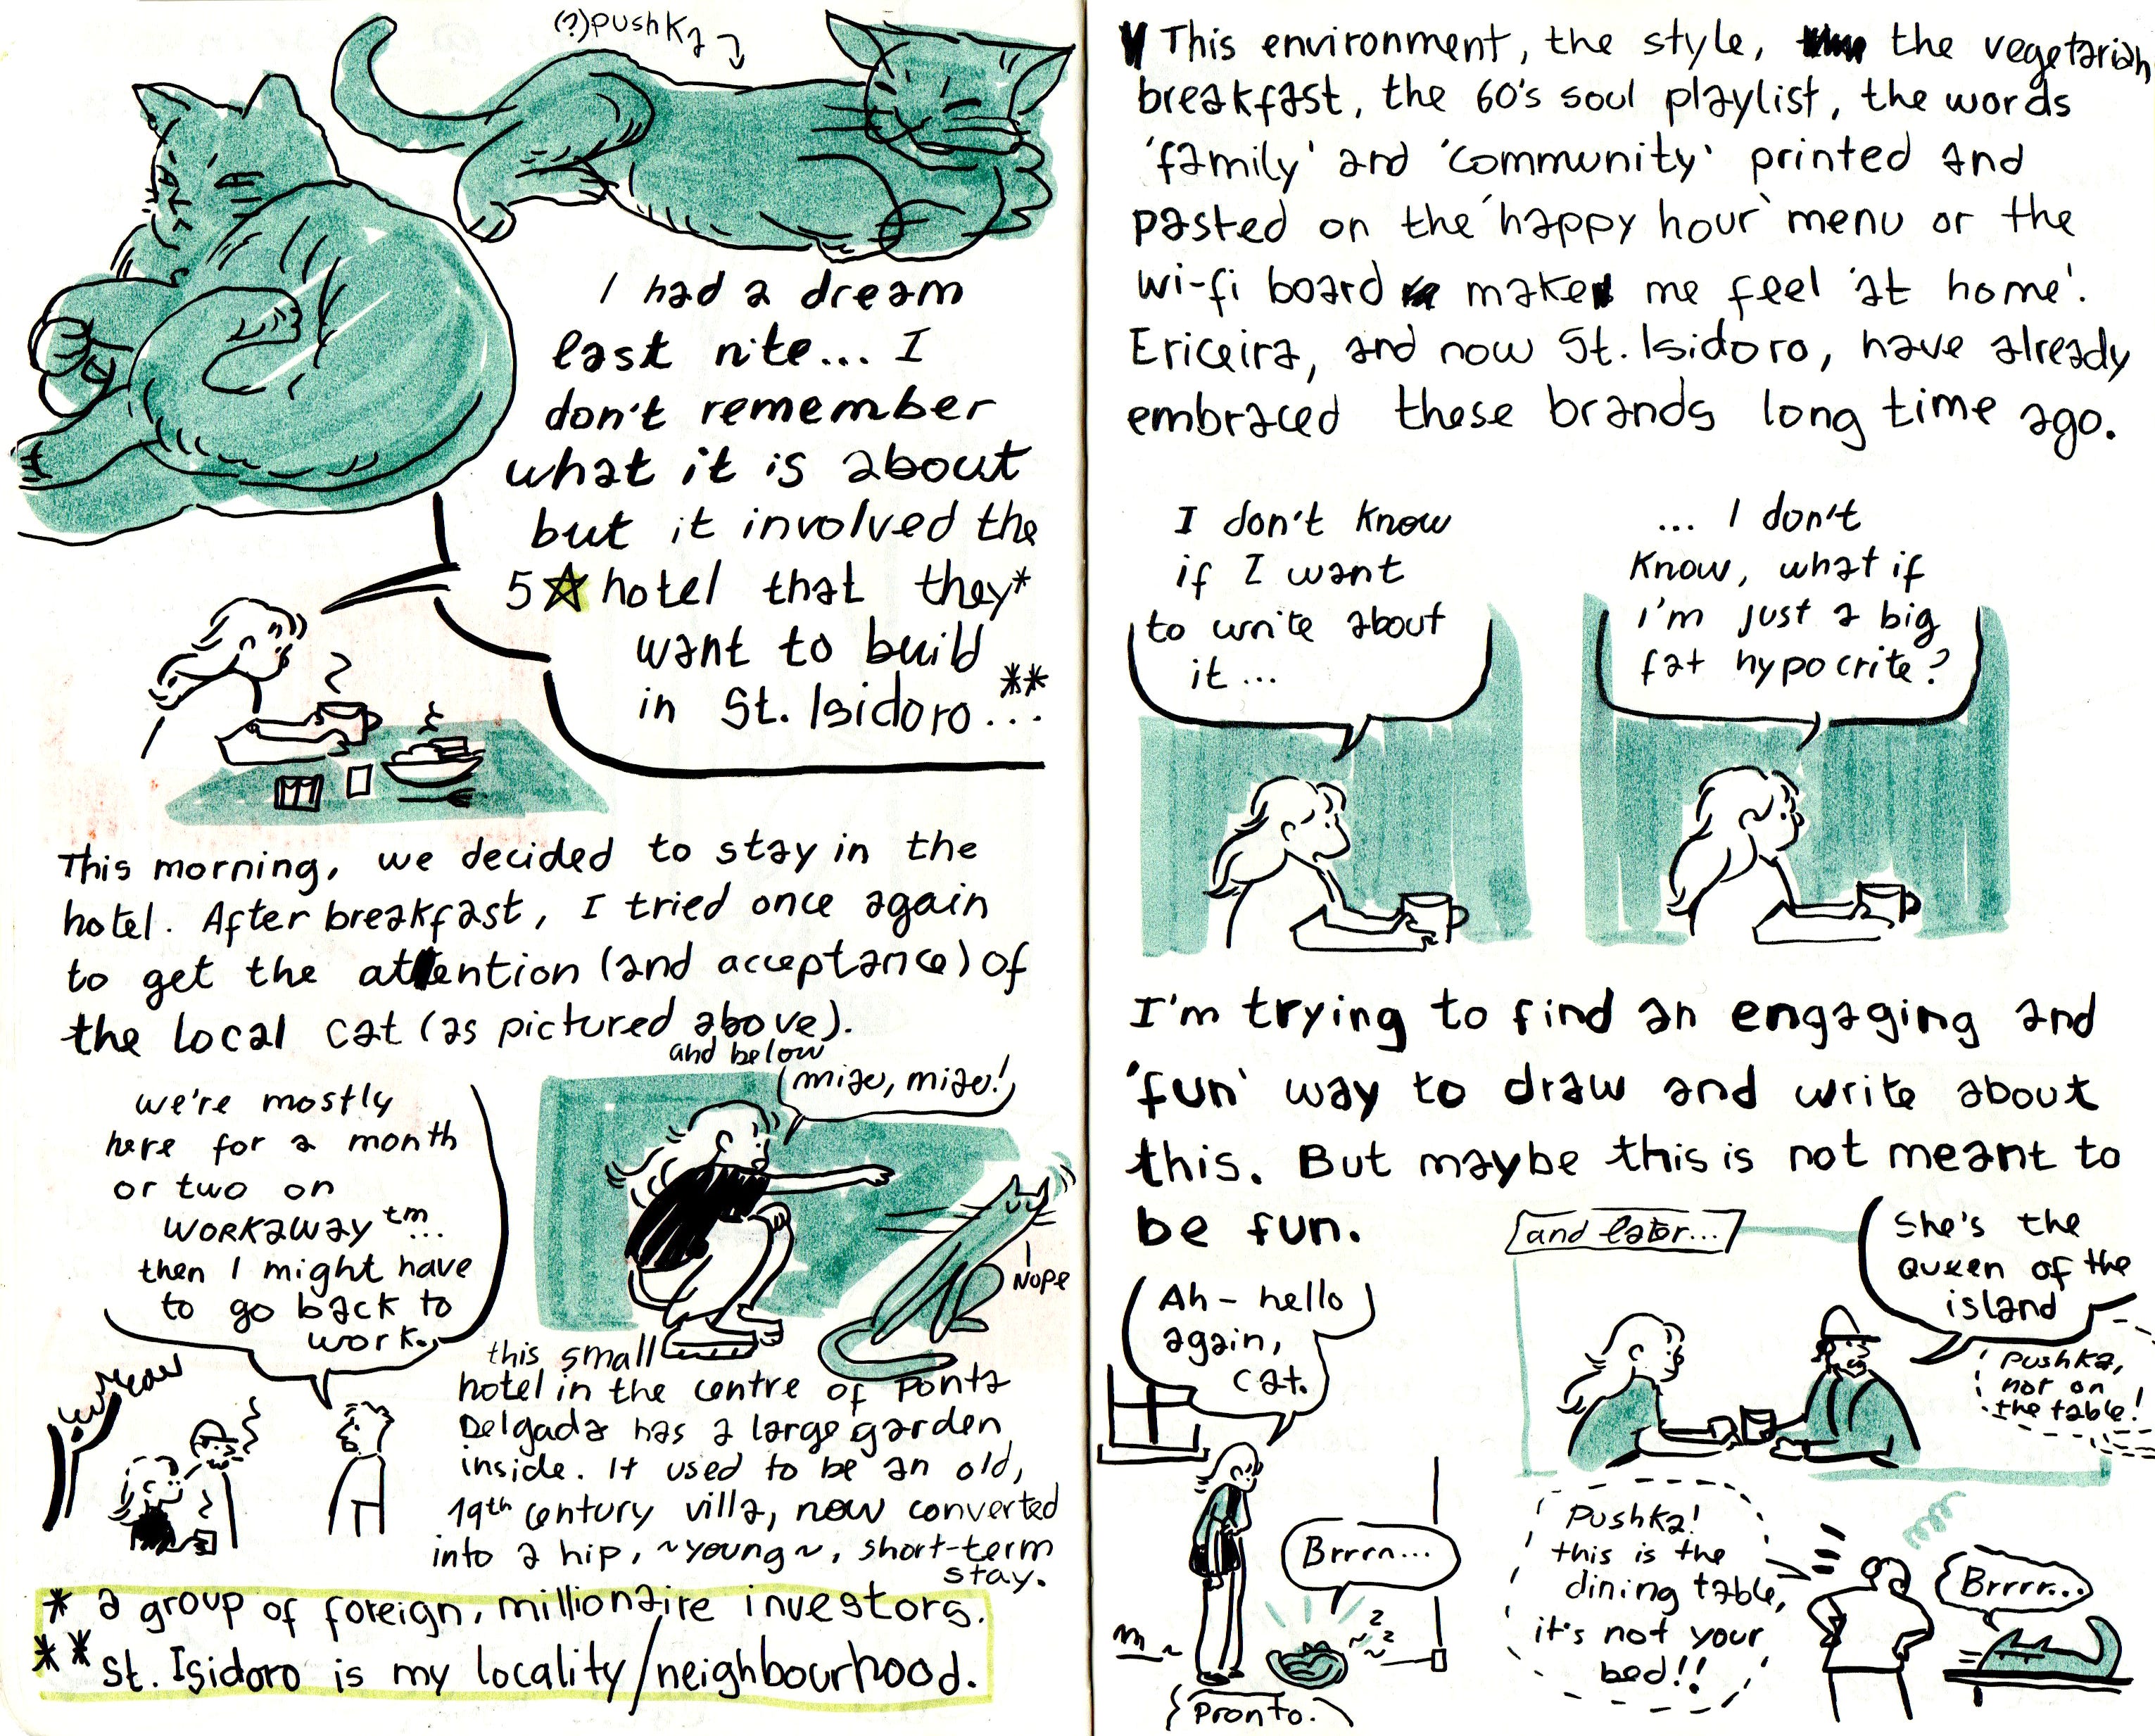 (?)pushka
I had a dream
last nite... I
don't remember
what it is about
but it involved the
5☆ hotel that they*
want to build
in St. Isidoro...**
This morning, we decided to stay in the
hotel. After breakfast, I tried once again
to get the attention (and acceptance) of
the local cat (as pictured above).
and below
miao, miao!
Nope
we're mostly
here for a month
or two on
workaway tm...
then I might have
to go back to
work.
meow
this small
hotel in the centre of Ponta
Delgada has a large garden
inside. It used to be an old,
19th century villa, now converted
into a hip, ~young~, short-term
stay.
* a group of foreign, millionaire investors.
** St. Isidoro is my locality/neighbourhood.
This environment, the style, the vegetarian
breakfast, the 60's soul playlist, the words
'family' and 'community' printed and
pasted on the 'happy hour' menu or the
wi-fi board make me feel 'at home'.
Ericeira, and now St. Isidoro, have already
embraced these brands long time ago.
I don't know
if I want
to write about
it...
... I don't
know, what if
I'm just a big
fat hypocrite?
I'm trying to find an engaging and
'fun' way to draw and write about
this. But maybe this is not meant to
be fun.
Ah - hello
again,
cat.
Brrrn...
z z z
Pronto.
and later...
She's the
Queen of the
island
Pushka,
not on
the table!
Pushka!
this is the
dining table,
it's not your
bed!!
Brrrr...